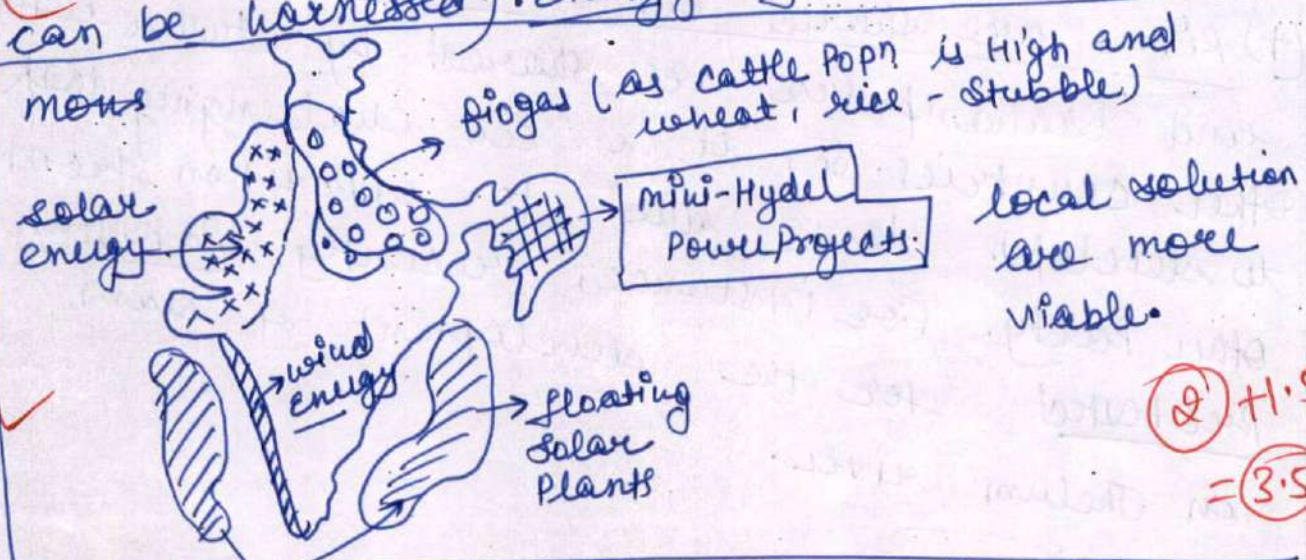 can be harnessed)
mons
Biogas (as cattle Popn is High and
wheat, rice - stubble)
solar
energy
mini-Hydel
Power Projects.
local solution
are more
viable.
wind
energy
floating
solar
Plants
(2) +1.5
= (3.5